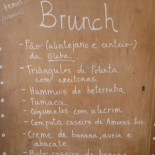 Brunch
- Pão (alentejano e centeio)
da Gleba
- Triângulos de Polenta
com azeitonas
- Hummus de beterraba
- Fumaca
- Cogumelos com alecrim
- Compota caseira de Amoras bio
- Creme de banana, aveia e
abacate